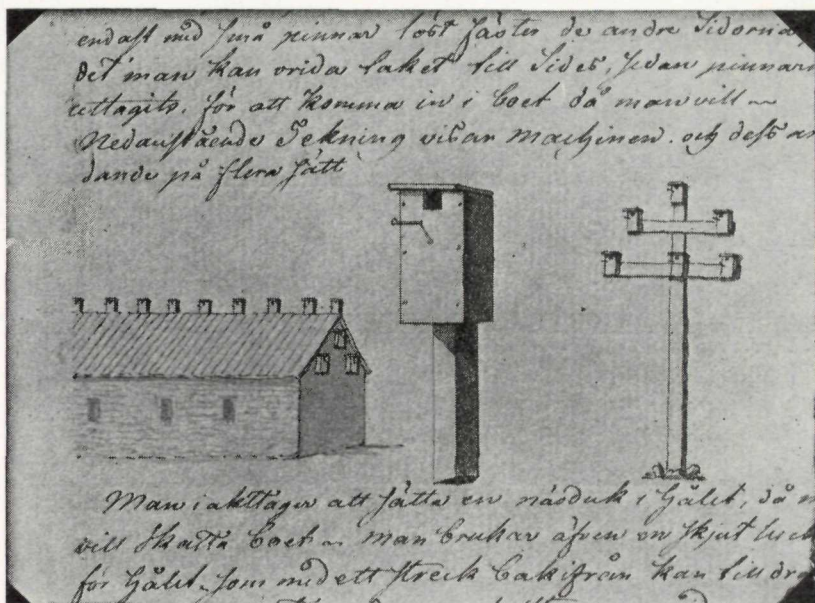 endast med små pinnar löst fäster de andre Sidorna,
det man kan vrida taket till Sides, sedan pinnarn
uttagits, för att komma in i boet då man vill ~
Nedanstående Tekning visar machinen och dess an
dande på flera sätt
Man iakttager att sätta en näsduk i hålet, då m
vill skatta boet ~ man brukar äfven en skjut luck
för hålet, som med ett streck bakifrån kan till dra